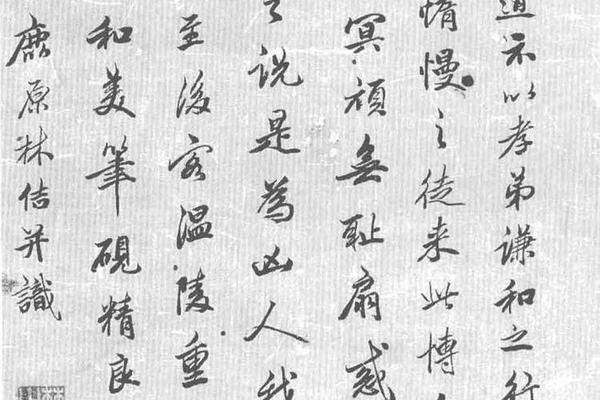 示以孝弟谦和之行
惰慢之徒来此博
冥頑無耻扇惑
说是為凶人我
至後客温陵重
和美筆硯精良
鹿原林佶并識